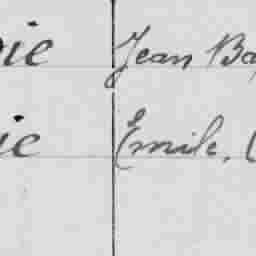 ie Jean Ba
ie Emile,